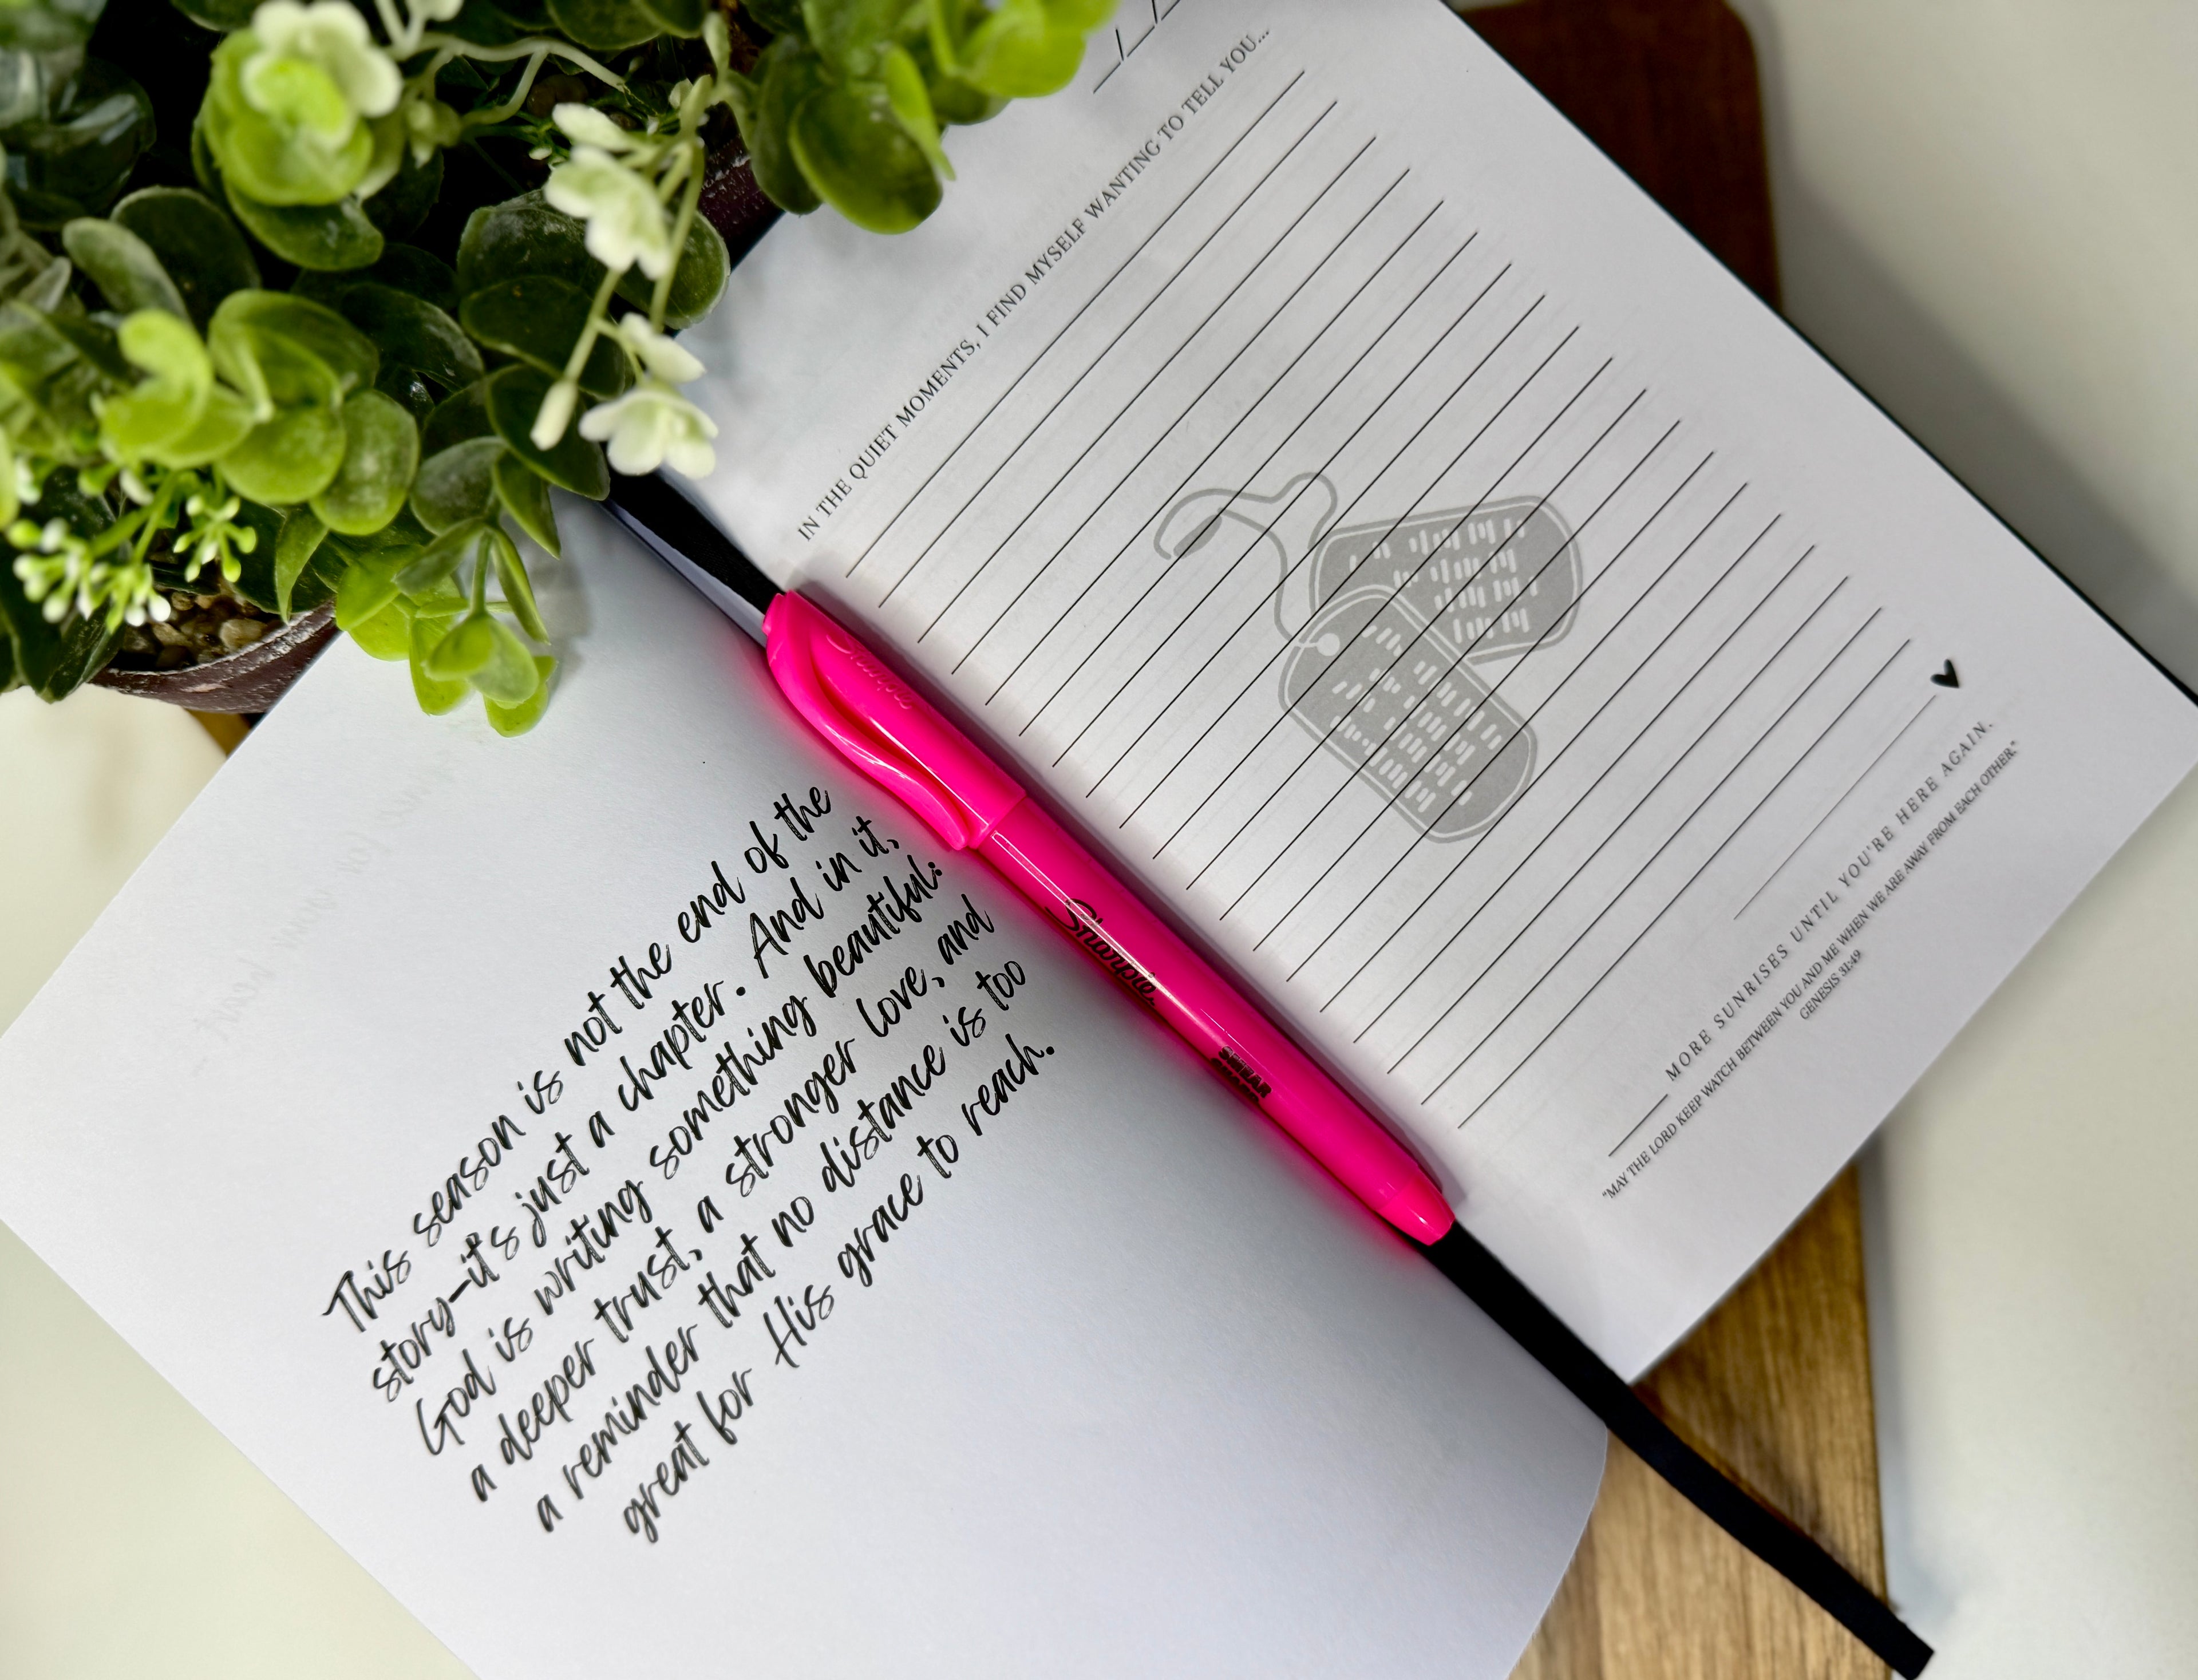 This season is not the end of the
story—it's just a chapter. And in it,
God is writing something beautiful:
a deeper trust, a stronger love, and
a reminder that no distance is too
great for His grace to reach.
Sharpie
Sharpie.
SMEAR
IN THE QUIET MOMENTS, I FIND MYSELF WANTING TO TELL YOU...
MORE SUNRISES UNTIL YOU'RE HERE AGAIN.
"MAY THE LORD KEEP WATCH BETWEEN YOU AND ME WHEN WE ARE AWAY FROM EACH OTHER."
GENESIS 31:49